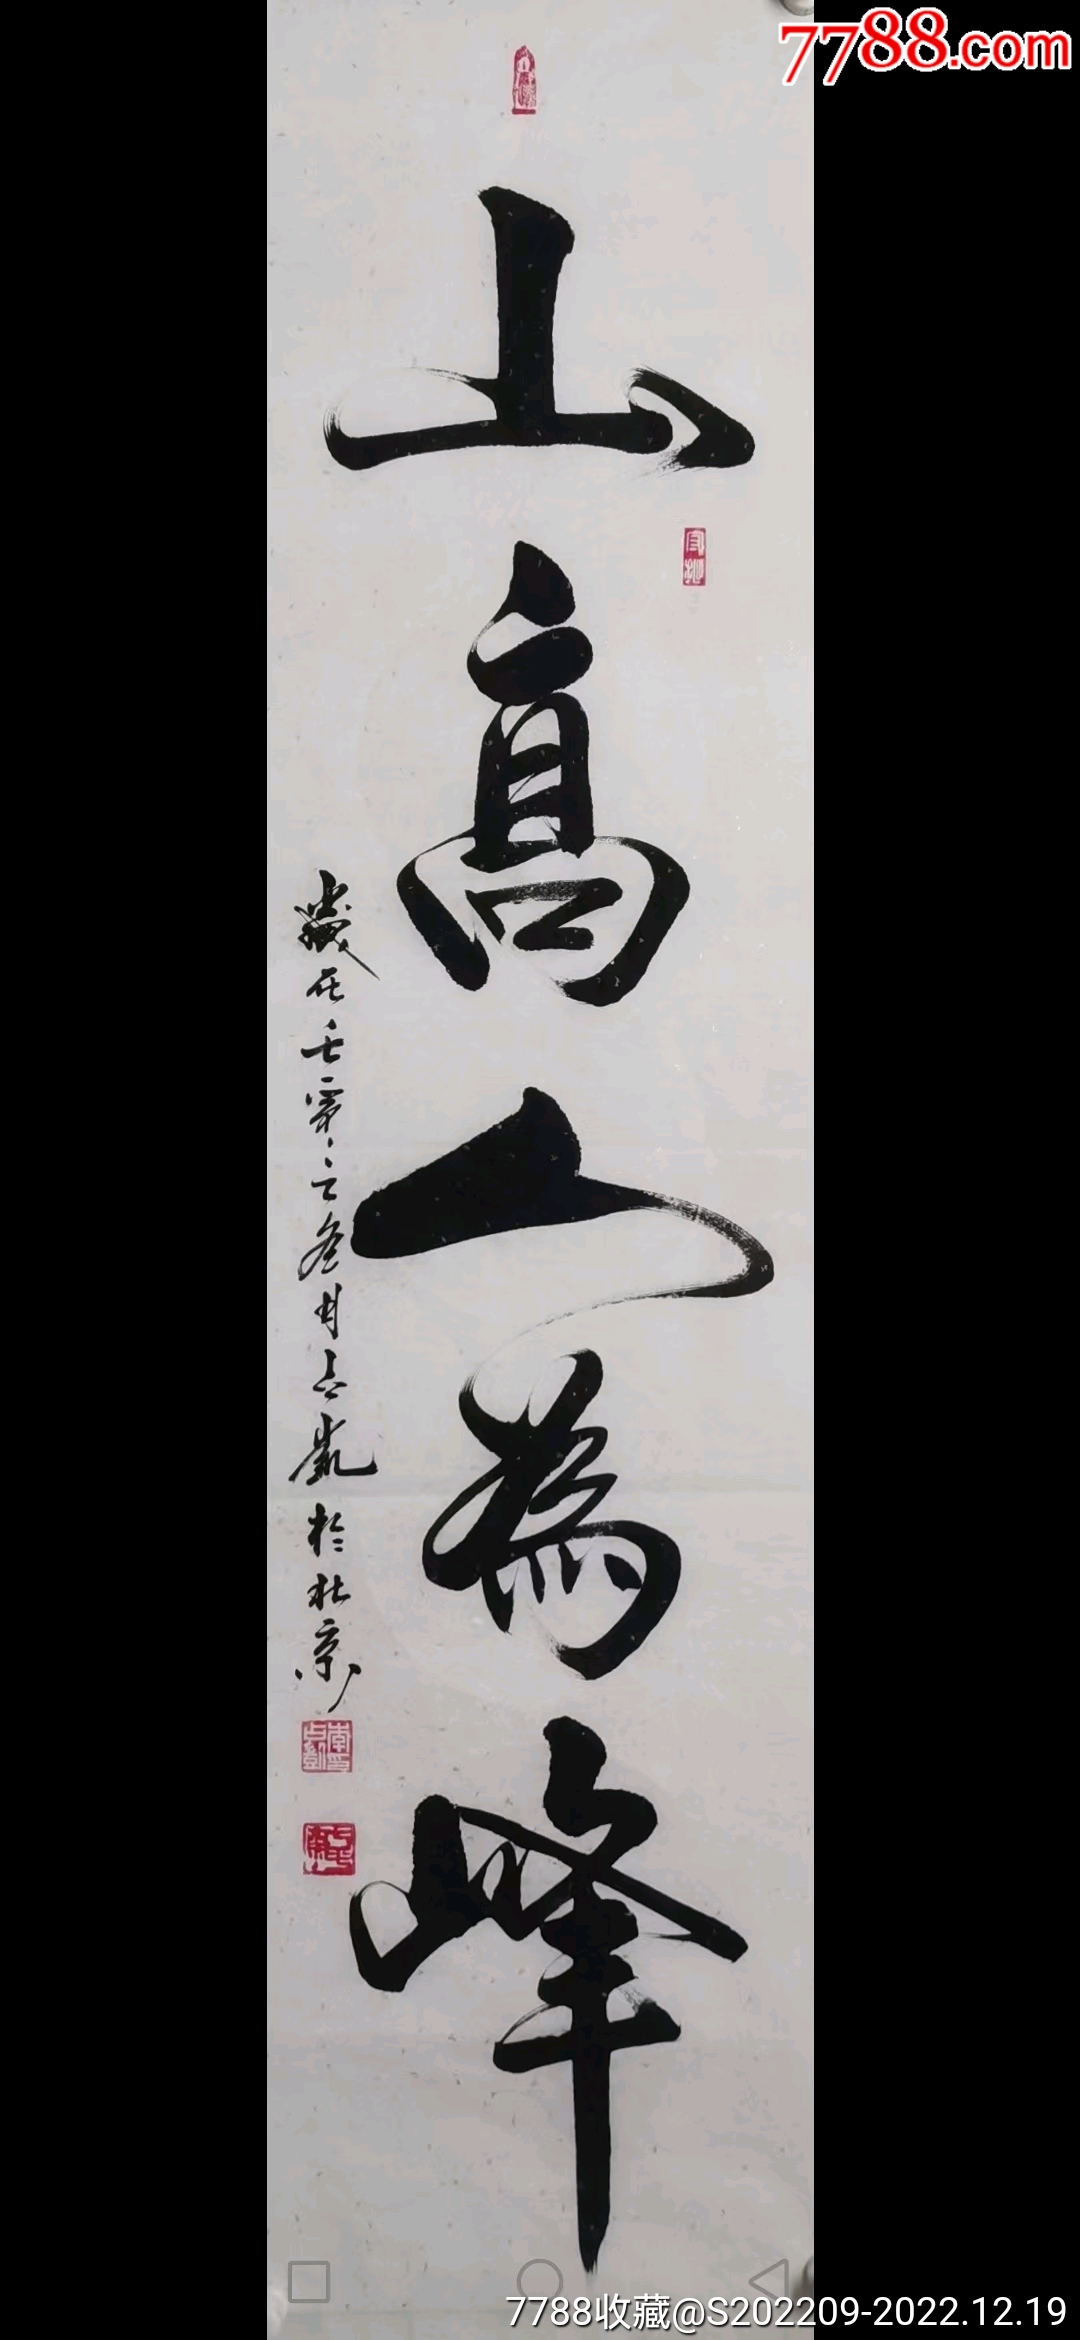 7788.com
山高人為峰
歲在壬寅之冬月占凱於北京
7788收藏@S202209-2022.12.19